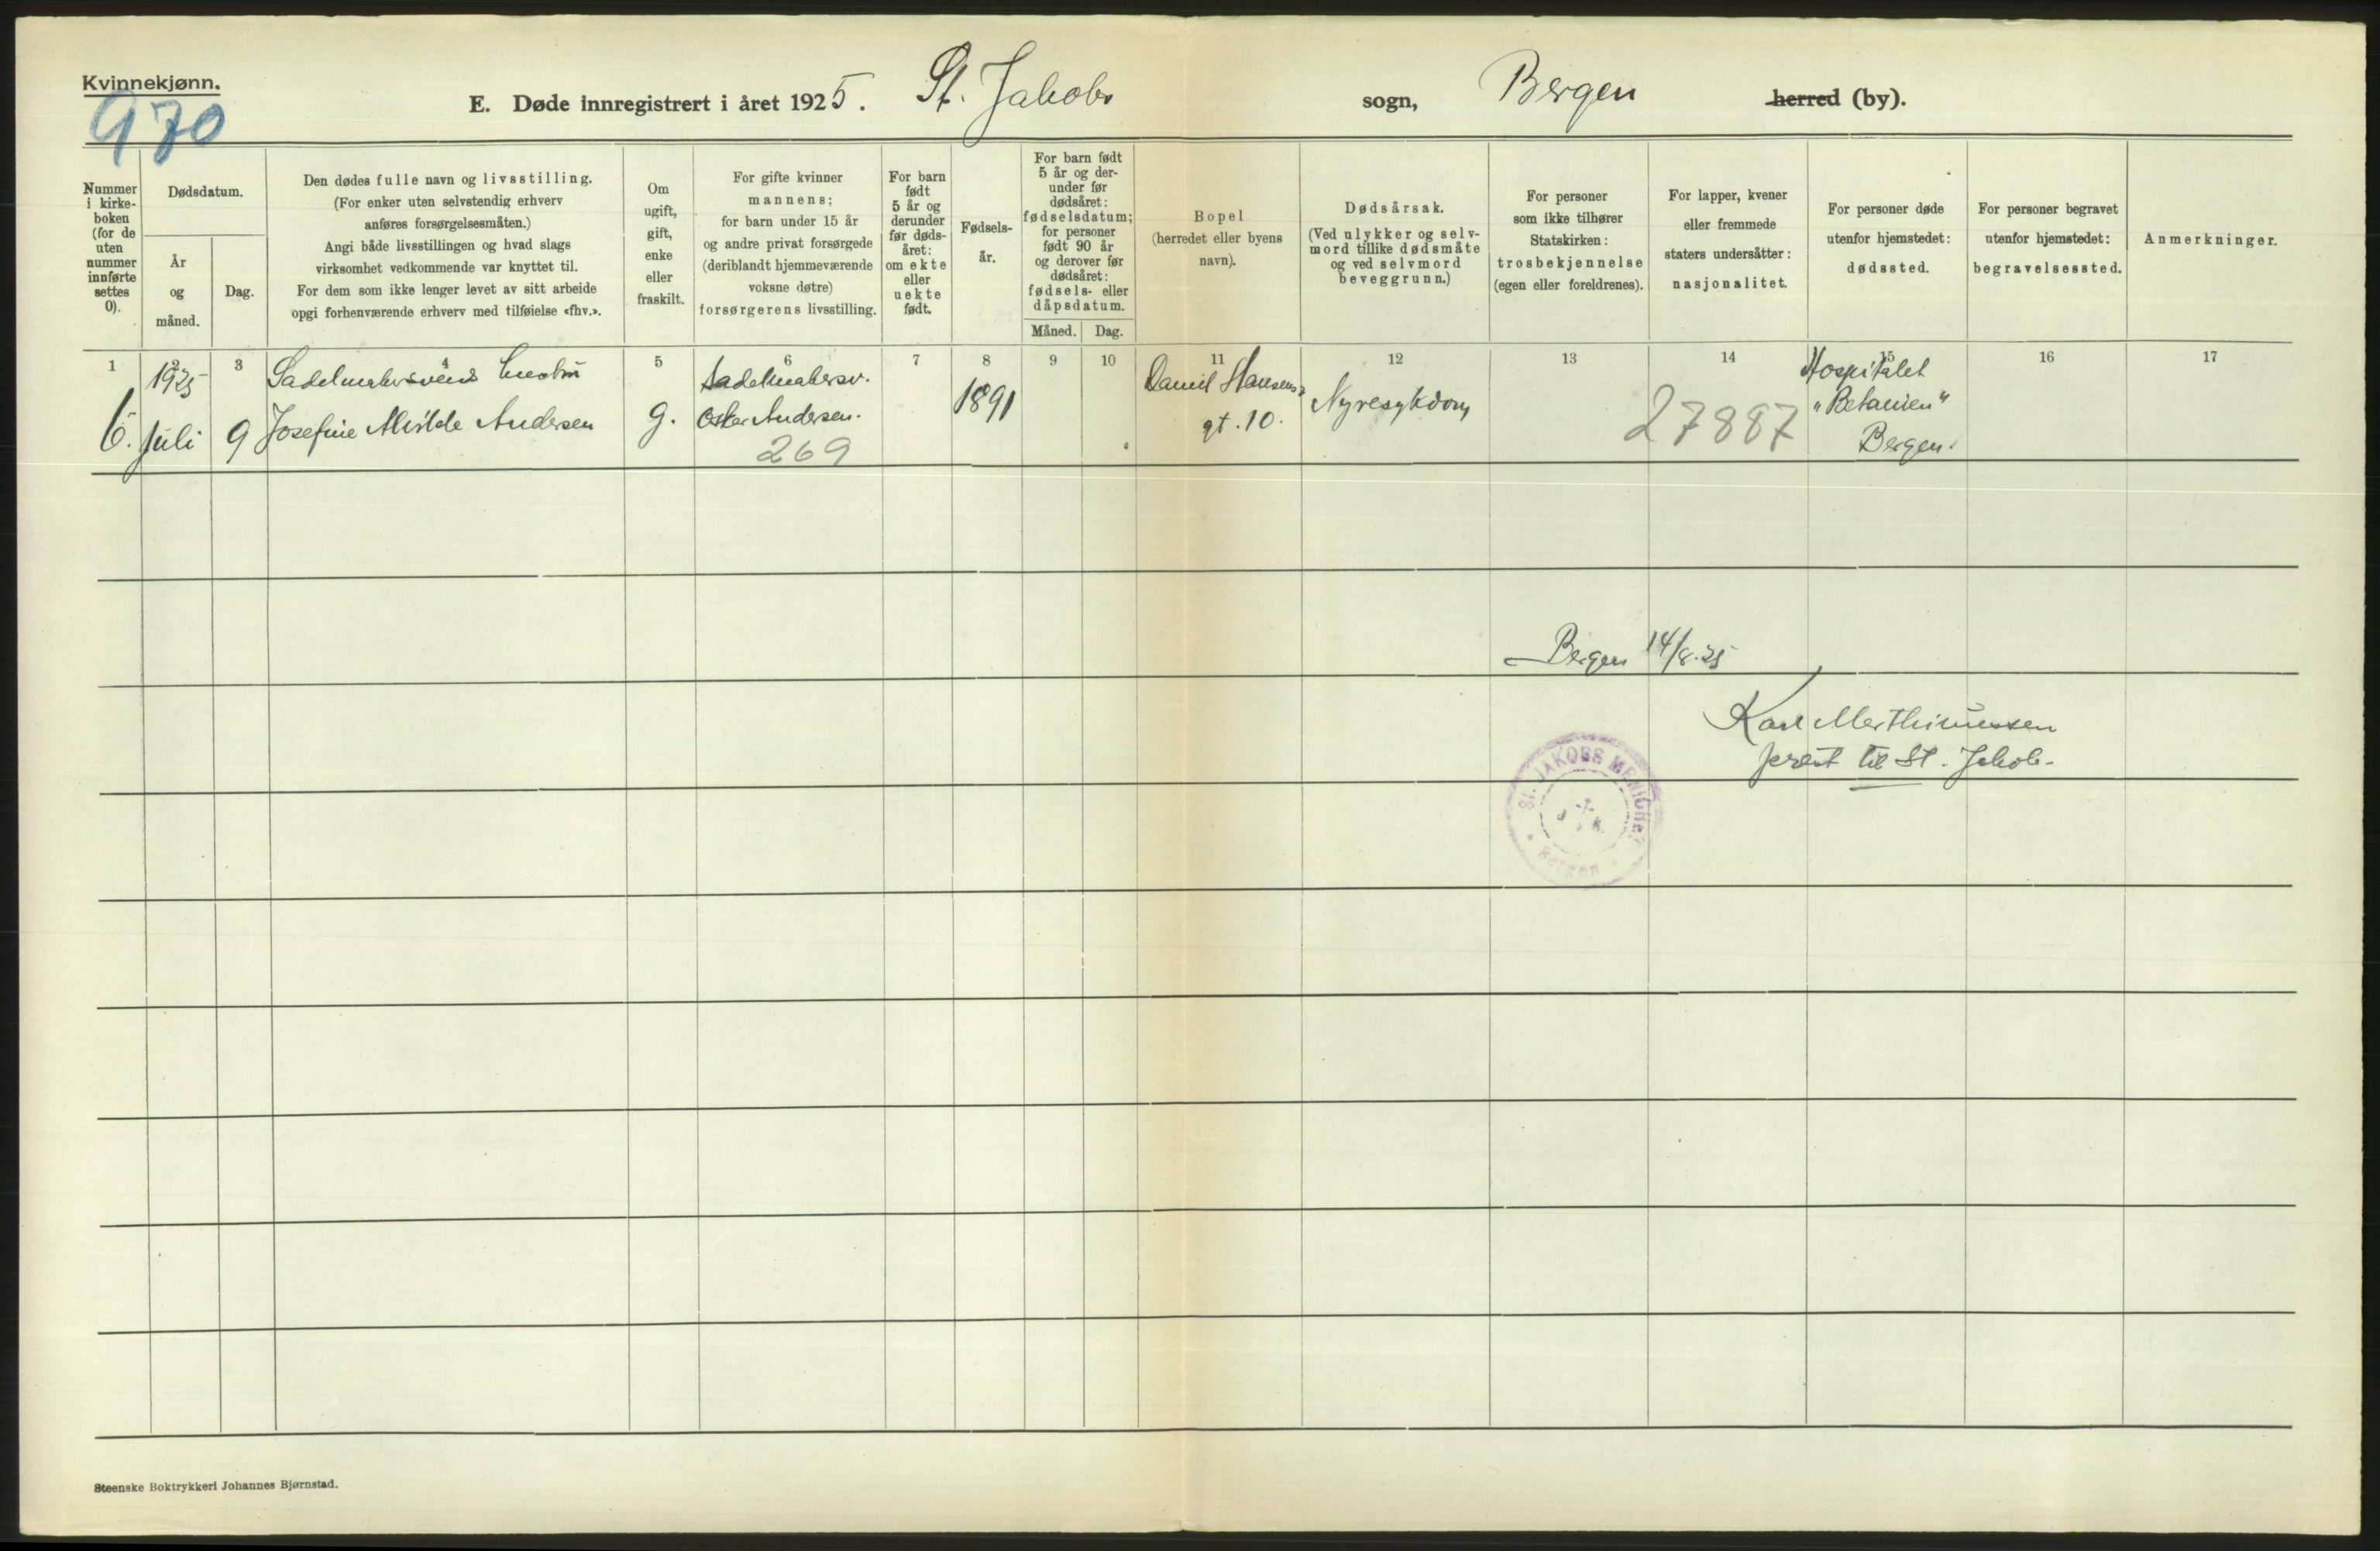 Kvinnekjønn.
970
E. Døde innregistrert i året 1925. St. Jakobs sogn, Bergen herred (by).
Nummer i kirke-boken (for de uten nummer innførte settes 0).
Dødsdatum.
År og måned.
Dag.
Den dødes fulle navn og livsstilling.
(For enker uten selvstendig erhverv
anføres forsørgelsesmåten.)
Angi både livsstillingen og hvad slags
virksomhet vedkommende var knyttet til.
For dem som ikke lenger levet av sitt arbeide
opgi forhenværende erhverv med tilføielse «fhv.».
Om
ugift,
gift,
enke
eller
fraskilt.
For gifte kvinner
mannens;
for barn under 15 år
og andre privat forsørgede
(deriblandt hjemmeværende
voksne døtre)
forsørgerens livsstilling.
For barn
født
5 år og
derunder
før døds-
året:
om ekte
eller
uekte
født.
Fødsels-
år.
For barn født
5 år og der-
under før
dødsåret:
fødselsdatum;
for personer
født 90 år
og derover før
dødsåret:
fødsels- eller
dåpsdatum.
Måned. Dag.
Bopel
(herredet eller byens
navn).
Dødsårsak.
(Ved ulykker og selv-
mord tillike dødsmåte
og ved selvmord
beveggrunn.)
For personer
som ikke tilhører
Statskirken:
trosbekjennelse
(egen eller foreldrenes).
For lapper, kvener
eller fremmede
staters undersåtter:
nasjonalitet.
For personer døde
utenfor hjemstedet:
dødssted.
For personer begravet
utenfor hjemstedet:
begravelsessted.
Anmerkninger.
1 2 3 4 5 6 7 8 9 10 11 12 13 14 15 16 17
6.
1925
Juli
9
Sadelmakersvens hustru
Josefine Milde Andersen
g.
Sadelmakersv.
Oskar Andersen.
269
1891
Daniel Hansens
gt. 10.
Nyresykdom
27887
Hospitalet
"Betanien"
Bergen.
Bergen 14/8.25
Karl Marthinussen
prest til St. Jakob.
St. JAKOBS MENIGHET
Bergen
Steenske Boktrykkeri Johannes Bjørnstad.